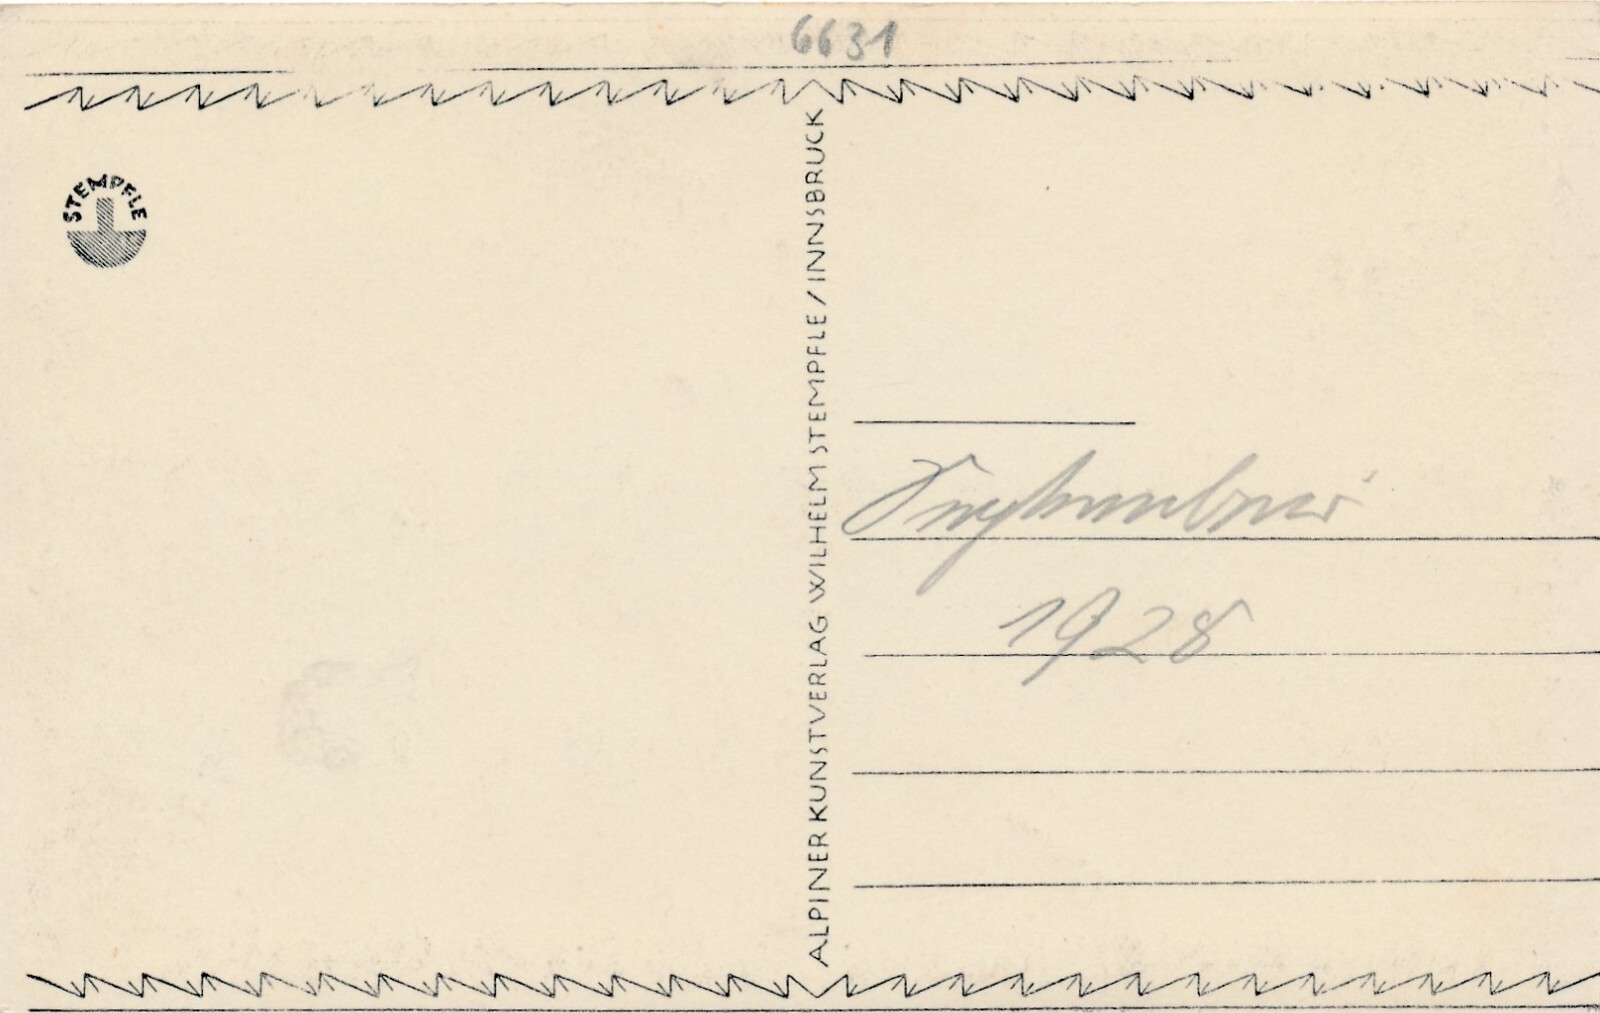 6631
STEMPFLE
ALPINER KUNSTVERLAG WILHELM STEMPFLE / INNSBRUCK
1928